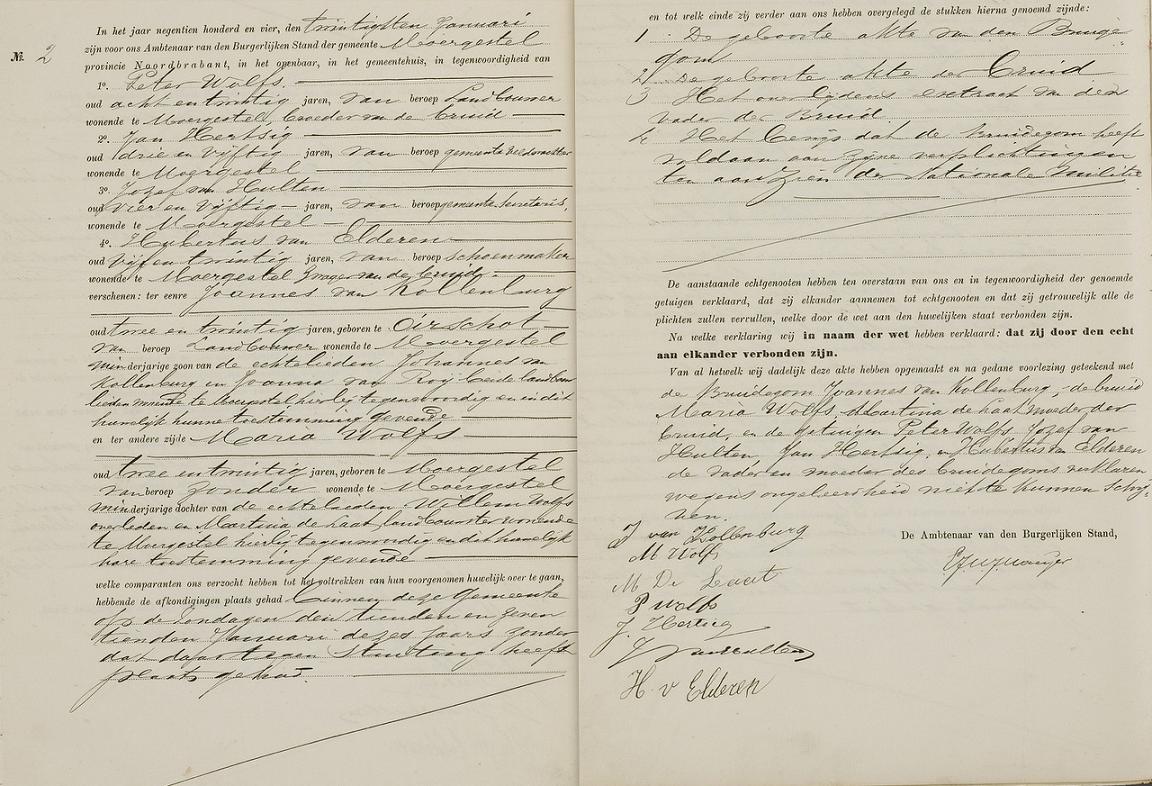 In het jaar negentien honderd en vier, den twintigsten Januari
zijn voor ons Ambtenaar van den Burgerlijken Stand der gemeente Moergestel
No. 2
provincie Noordbrabant, in het openbaar, in het gemeentehuis, in tegenwoordigheid van
1o. Peter Wolfs.
oud acht en twintig jaren, van beroep Landbouwer
wonende te Moergestel, broeder van de bruid
2o. Jan Hertsig
oud drie en vijftig jaren, van beroep gemeente veldwachter
wonende te Moergestel
3o. Jozef van Hulten
oud vier en vijftig jaren, van beroep gemeente secretaris,
wonende te Moergestel
4o. Hubertus van Elderen
oud vijf en twintig jaren, van beroep schoenmaker
wonende te Moergestel zwager van de bruid
verschenen: ter eenre Joannes van Kollenburg
oud twee en twintig jaren, geboren te Oirschot
van beroep Landbouwer wonende te Moergestel
minderjarige zoon van de echtelieden Johannes van
Kollenburg en Joanna van Roij beide landbouw
lieden wonende te Moergestel hierbij tegenwoordig en in dit
huwelijk hunne toestemming gevende
en ter andere zijde Maria Wolfs
oud twee en twintig jaren, geboren te Moergestel
van beroep zonder wonende te Moergestel
minderjarige dochter van de echtelieden Willem Wolfs
overleden en Martina de Laat, landbouwster wonende
te Moergestel hierbij tegenwoordig en dit huwelijk
hare toestemming gevende
welke comparanten ons verzocht hebben tot het voltrekken van hun voorgenomen huwelijk over te gaan,
hebbende de afkondigingen plaats gehad binnen deze Gemeente
op de Zondagen den tienden en zeven
tienden Januari dezes jaars zonder
dat daartegen Stuiting heeft
plaats gehad.
en tot welk einde zij verder aan ons hebben overgelegd de stukken hierna genoemd zijnde:
1 De geboorte akte van den Bruide
gom
2 De geboorte akte der Bruid
3 Het overlijdens extract van den
vader der Bruid.
4 Het bewijs dat de bruidegom heeft
voldaan aan zijne verplichtingen
ten aanzien der Nationale Militie
De aanstaande echtgenooten hebben ten overstaan van ons en in tegenwoordigheid der genoemde
getuigen verklaard, dat zij elkander aannemen tot echtgenooten en dat zij getrouwelijk alle de
plichten zullen vervullen, welke door de wet aan den huwelijken staat verbonden zijn.
Na welke verklaring wij in naam der wet hebben verklaard: dat zij door den echt
aan elkander verbonden zijn.
Van al hetwelk wij dadelijk deze akte hebben opgemaakt en na gedane voorlezing geteekend met
de Bruidegom Joannes van Kollenburg, de bruid
Maria Wolfs, Martina de Laat moeder der
bruid, en de getuigen Peter Wolfs Jozef van
Hulten, Jan Hertsig, en Hubertus van Elderen
de vader en moeder des bruidegoms verklaren
wegens ongeleerdheid niet te kunnen schrij
ven.
J van Kollenburg
M Wolfs
De Ambtenaar van den Burgerlijken Stand,
M De Laat
P Wolfs
J. Hertsig
J van Hulten
H v Elderen